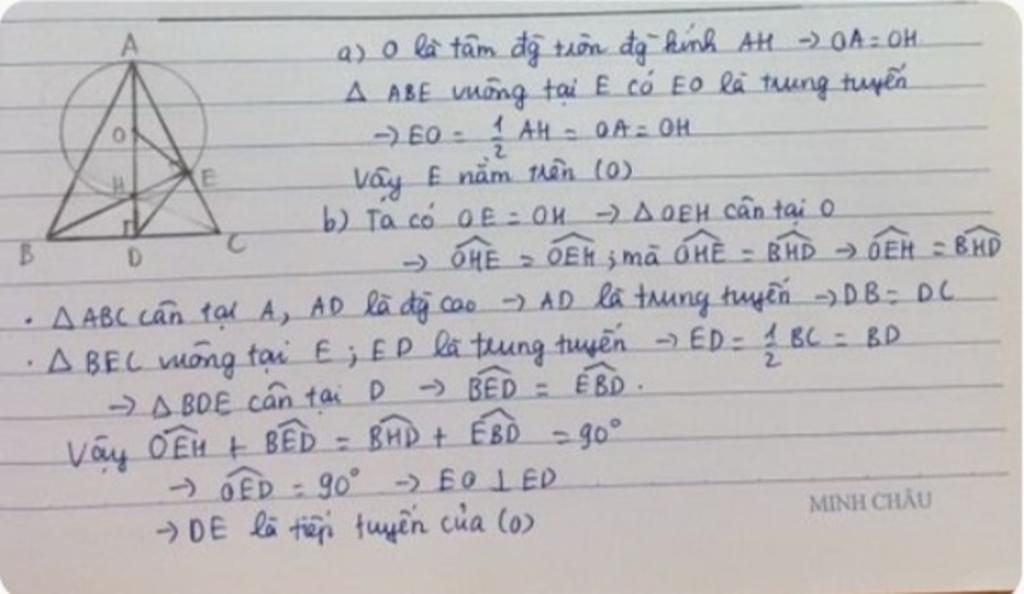 A
O
H
E
B
D
C
a) O là tâm đg̃ tròn đg̃ kính AH → OA = OH
Δ ABE vuông tại E có EO là trung tuyến
→ EO = 1/2 AH = OA = OH
Vậy E nằm trên (O)
b) Ta có OE = OH → Δ OEH cân tại O
→ \widehat{OHE} = \widehat{OEH} ; mà \widehat{OHE} = \widehat{BHD} → \widehat{OEH} = \widehat{BHD}
. Δ ABC cân tại A, AD là đg̃ cao → AD là trung tuyến → DB = DC
. Δ BEC vuông tại E ; ED là trung tuyến → ED = 1/2 BC = BD
→ Δ BDE cân tại D → \widehat{BED} = \widehat{EBD} .
Vậy \widehat{OEH} + \widehat{BED} = \widehat{BHD} + \widehat{EBD} = 90°
→ \widehat{OED} = 90° → EO ⊥ ED
→ DE là tiếp tuyến của (O)
MINH CHÂU